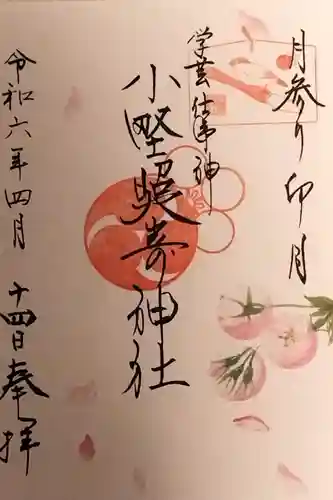 月参り 卯月
学芸仕事神
小野照崎神社
令和六年四月
十四日奉拝